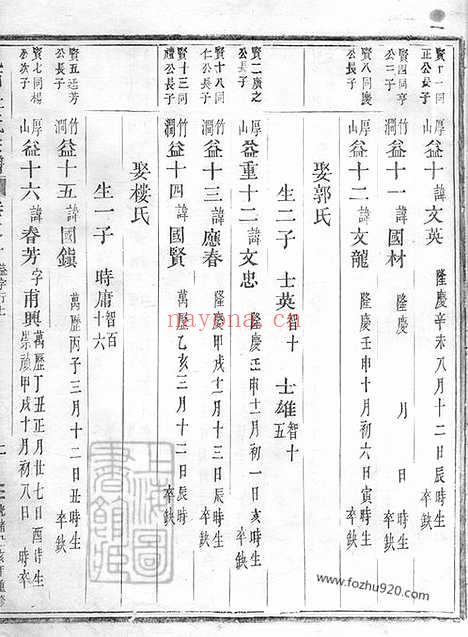 賢十一同
正公長子
厚山 益十 諱文英 隆慶辛未八月十二日辰時生 卒缺
賢四同亨
公二子
竹澗 益十一 諱國材 隆慶 月 日 時生 卒缺
賢八同慶
公長子
厚山 益十二 諱文龍 隆慶壬申十月初六日寅時生 卒缺
娶郭氏
生二子 士英智十 士雄智十五
賢二廣之
公長子
厚山 益重十二 諱文忠 隆慶壬申十二月初一日亥時生 卒缺
賢十八同
仁公長子
竹澗 益十三 諱應春 隆慶甲戌十二月十三日辰時生 卒缺
賢十三同
禮公長子
竹澗 益十四 諱國賢 萬曆乙亥三月十二日辰時 卒缺
娶樓氏
生一子 時庸智百十六
賢五廷芳
公長子
竹澗 益十五 諱國鎮 萬曆丙子三月十二日丑時生 卒缺
賢七同楊
公次子
厚山 益十六 諱春芳 字甫興 萬曆丁丑正月廿七日酉時生
崇禎甲戌十月初八日 時卒
上海圖書館藏
nayona.cn
www.fozhu920.com